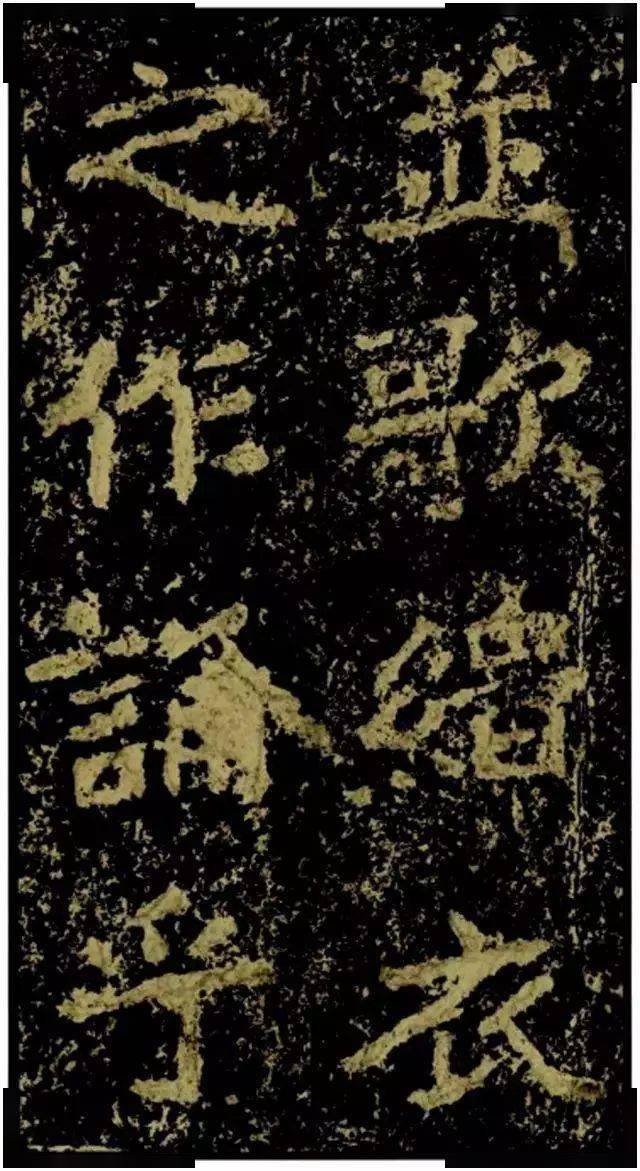 並歌緇衣
之作論乎